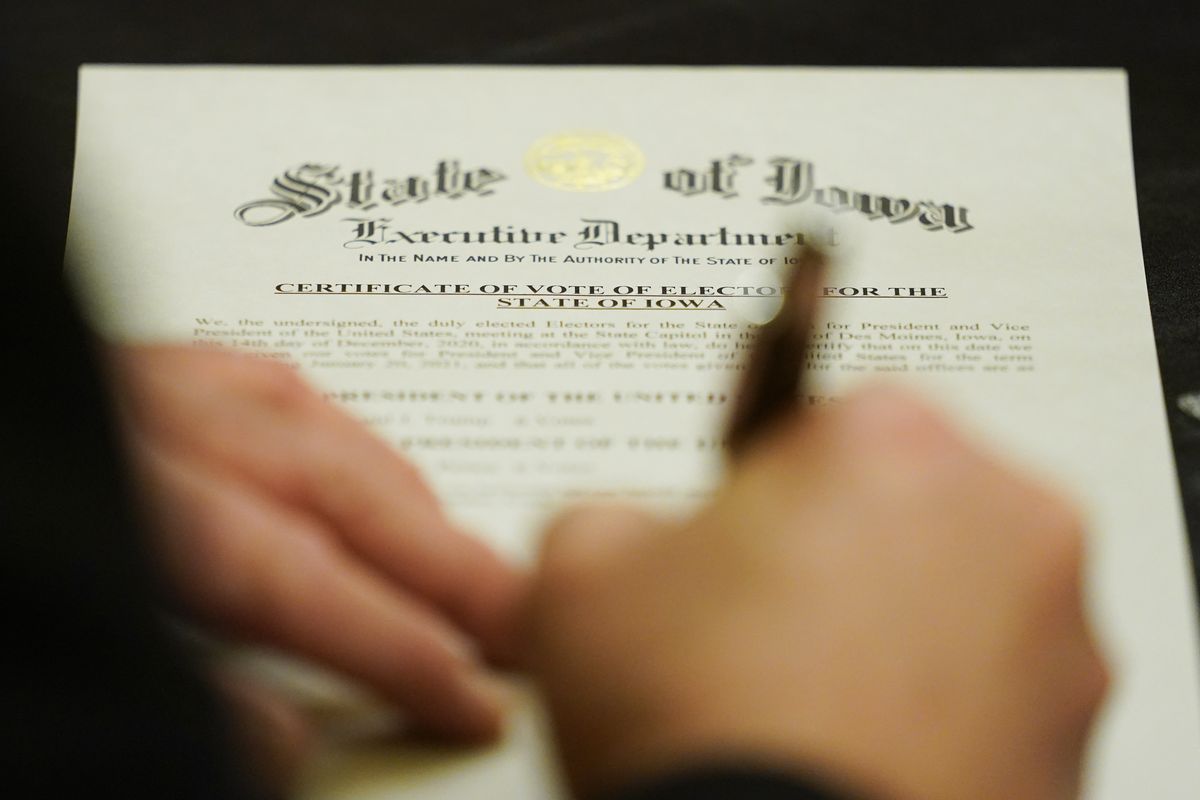 State of Iowa
Executive Department
IN THE NAME AND BY THE AUTHORITY OF THE STATE OF
CERTIFICATE OF VOTE OF ELECTO FOR THE
STATE OF IOWA
We, the undersigned, the duly elected Electors for the State for President and Vice
President of the United States, meeting at the State Capitol in the of Des Moines, Iowa, on
this 14th day of December, 2020, in accordance with law, do certify that on this date we
our votes for President and Vice President of States for the term
January 20, 2021, and that all of the votes given for the said offices are as
PRESIDENT OF THE UNITED
PRESIDENT OF THE